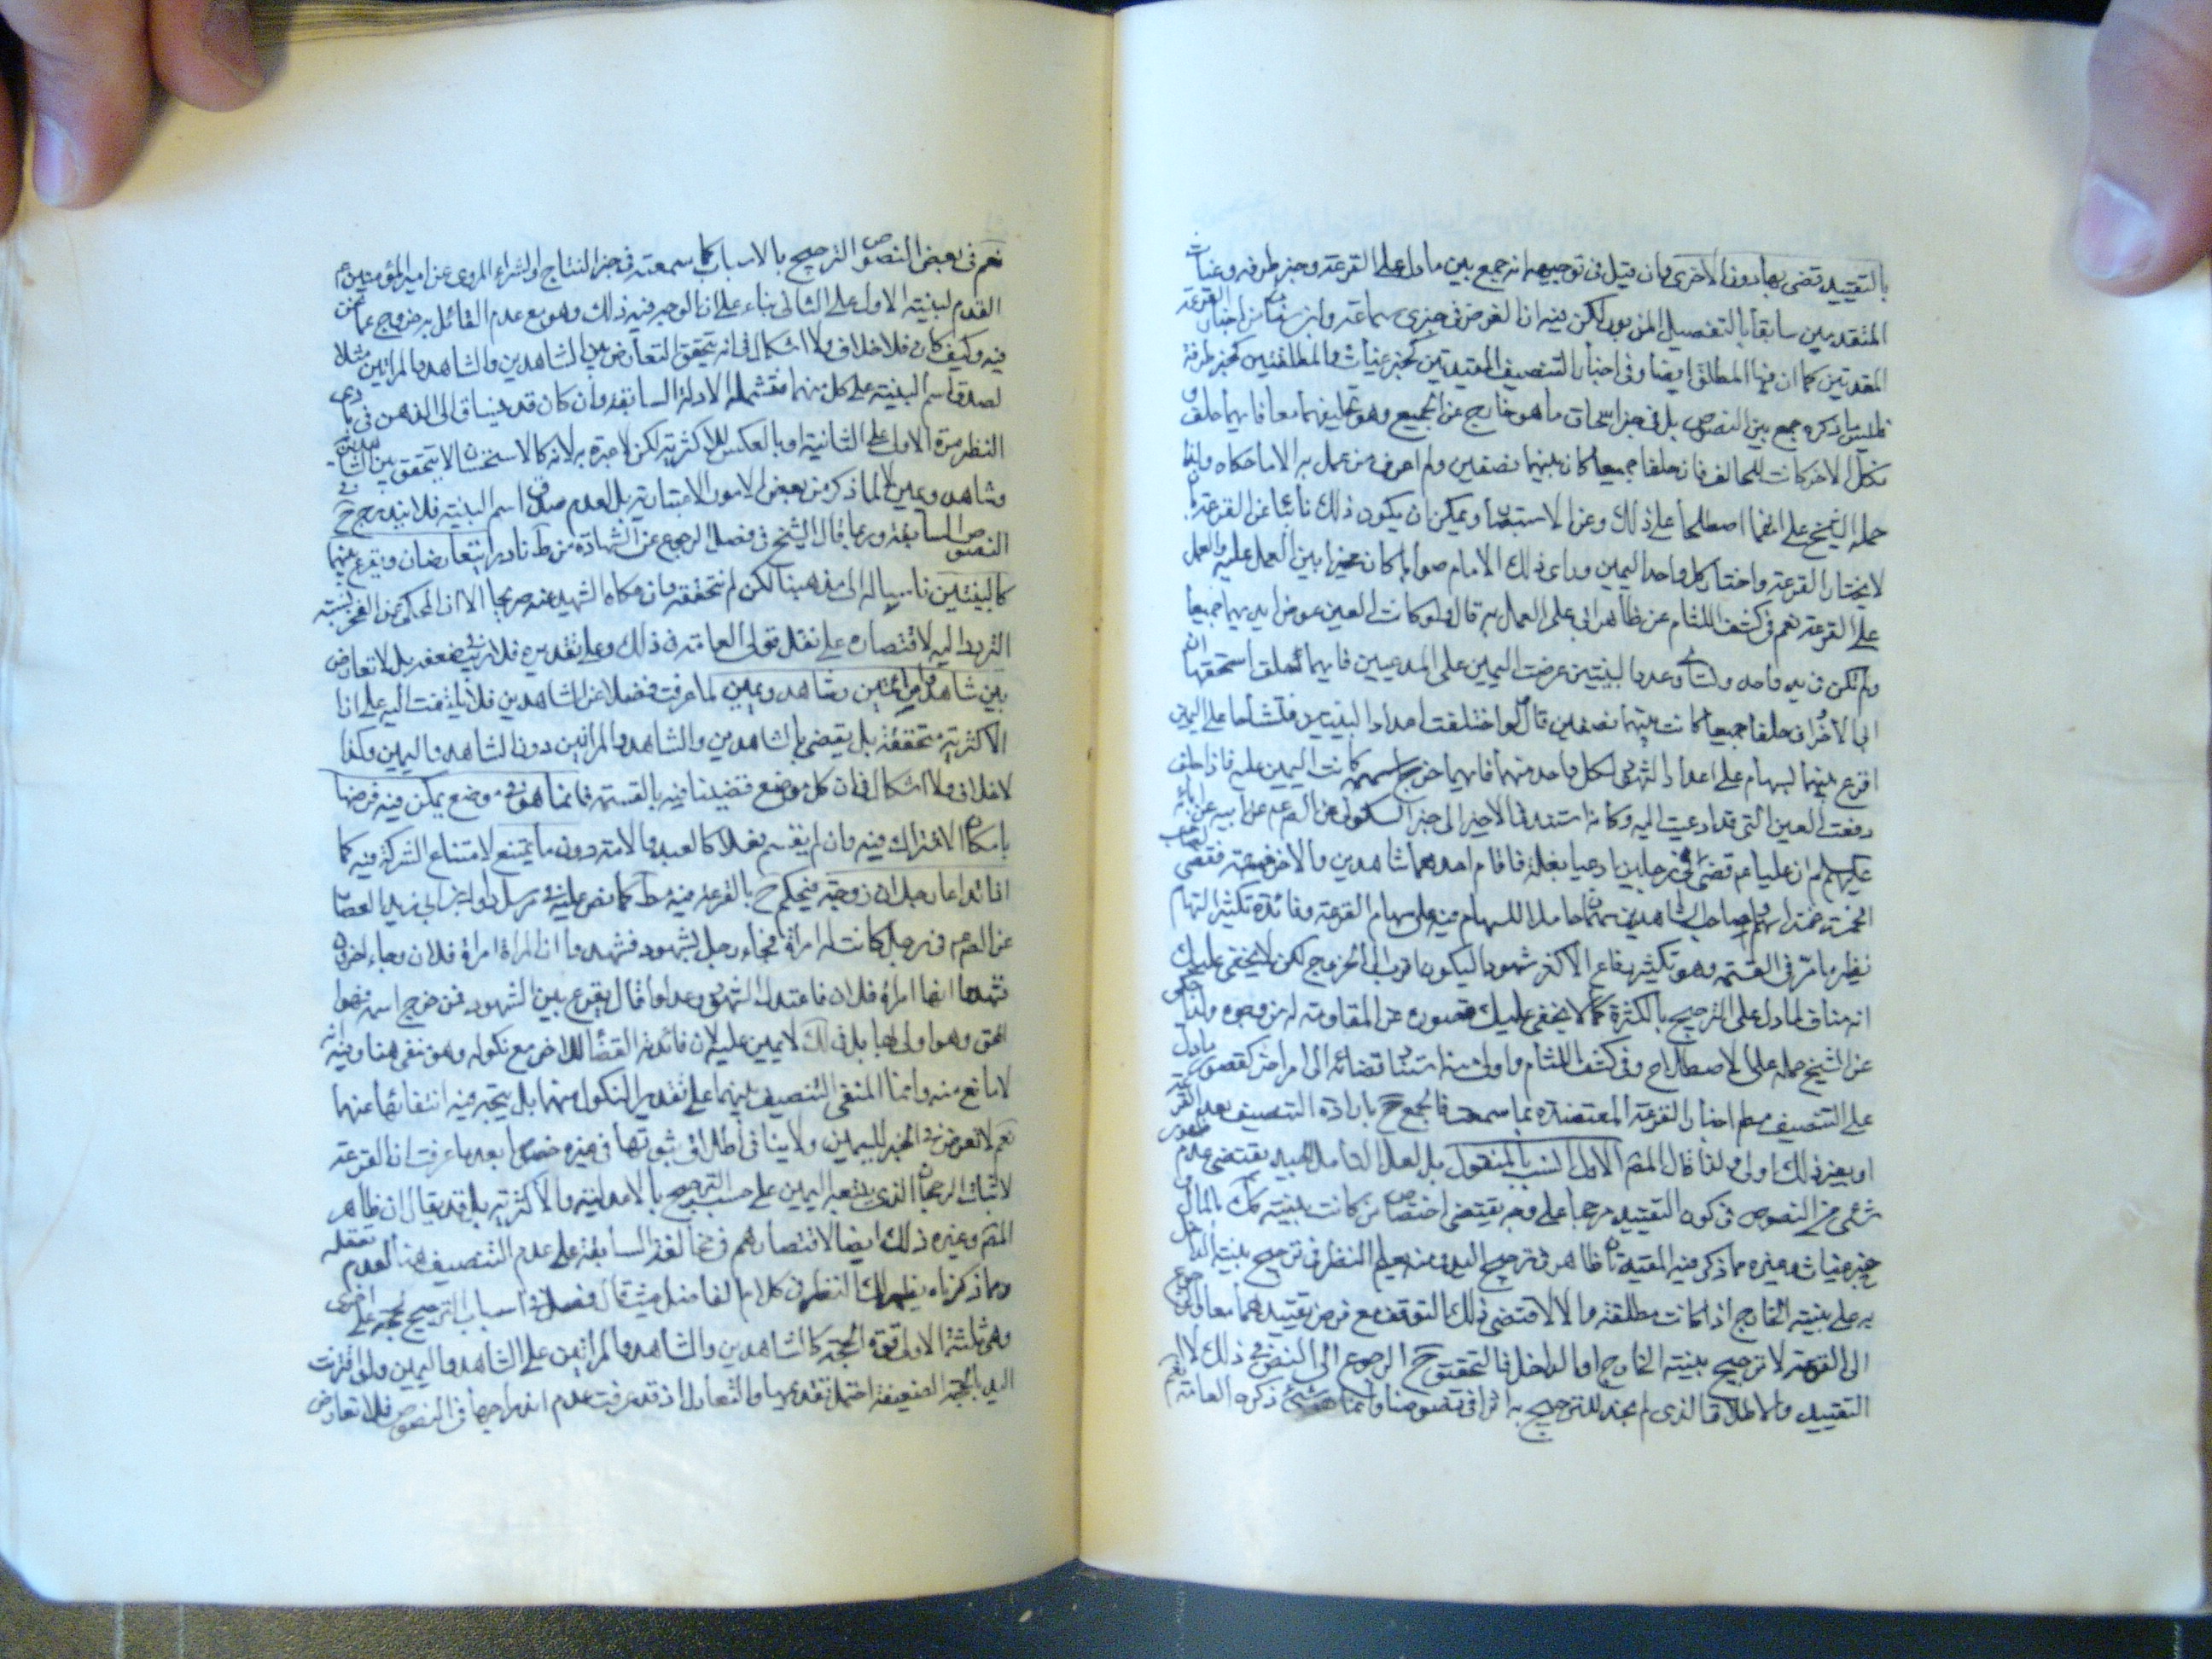 بالتقييد قضى بها دون الاخرى وان قيل فى توجيهه انه جمع بين ما دل على القرعة وخبر طرفه وغياث
المتقدمين سابقا بالتفصيل المزبور لكن فيه ان الفرض فى خبرى سماعة و من اخبار القرعة
المقدمتين كما ان فيها المطلق ايضا وفى اخبار التنصيف المقيدتين كخبر غياث والمطلقتين كخبر طرفة
فليس ما ذكره جمع بين النصوص بل فى خبر اسحاق ما هو خارج عن الجميع وهو تحليفهما معا فايهما حلف و
نكل الاخر كانت للحالف فان حلفا جميعا كان بينهما نصفين ولم اعرف من عمل به الا ما حكاه
حمله الشيخ على انهما اصطلحا على ذلك وعن الاستبصار ويمكن ان يكون ذلك نائبا عن القرعة بان
لا يختار القرعة واختار كل واحد اليمين وراى ذلك الامام صوابا كان مخيرا بين العمل عليه والعمل
على القرعة نعم فى كشف اللثام عن ظاهر ابى على العمل به قال ولو كانت العين عوض ايديهما جميعا
ولم تكن فى يد واحد وتساوى عدد البينتين عرضت اليمين على المدعيين فايهما تحلف استحقها ان
ابى الاخر وان حلفا جميعا كانت بينهما نصفين قال ولو اختلفت اعداد البينتين فتشاحا على اليمين
اقرع بينهما بسهام على اعداد الشهود لكل واحد منهما فايهما خرج سهمه كانت اليمين عليه فاذا حلف
دفعت العين التى قد ادعيت اليه وكانه استند فى الاخير الى خبر السكونى عن الصادق ع عن ابيه عن ابائه
عليهم السلام ان عليا ع قضى فى رجلين ادعيا بغلة فاقام احدهما شاهدين والاخر خمسة فقضى لصاحب
الخمسة خمسة اسهم ولصاحب الشاهدين سهمان حاملا للسهام فيه على سهام القرعة وفائدة تكثير السهام
نظير ما مر فى القسمة وهو تكثير رقاع الاكثر شهودا ليكون اقرب الى الخروج لكن لا يخفى عليك
انه مناف لما دل على الترجيح بالكثرة كما لا يخفى عليك قصوره عن المقاومة له من وجوه ولذا حكى
عن الشيخ حمله على الاصطلاح وفى كشف اللثام واولى منه استناد قضائه الى امر اخر كقصور ما دل
على التنصيف مع اخبار القرعة المعتضدة بما سمعت فالجمع ح بارادة التنصيف بعد القرعة
او بغير ذلك اولى ولذا قال المص الاول انسب بالمنقول بل لعل التامل الجيد يقتضى عدم ظهور
شىء من النصوص فى كون التقييد مرجحا على وجه يقتضى اختصاص من كانت بينته كك بالمال
خبر غياث وغيره مما ذكر فيه المقيدتان ظاهر فى ترجيح اليد ومنه يعلم النظر فى ترجيح بينة الداخل
به على بينة الخارج اذا كانت مطلقة والا لاقتضى ذلك التوقف مع فرض تقييدهما معا والرجوع
الى القرعة لا ترجيح بينة الخارج او الداخل فالتحقيق ح الرجوع الى النص فى ذلك لا الى
التقييد والاطلاق الذى لم نجد للترجيح به اثرا فى نصوصنا وانما هو شىء ذكره العامة
نعم فى بعض النصوص الترجيح بالاسباب كما سمعته فى خبر النتاج او الشراء المروى عن امير المؤمنين ع
المقدم لبينة الاول على الثانى بناء على ان الوجه فيه ذلك وهو مع عدم القائل به خروج عما نحن
فيه وكيف كان فلا خلاف ولا اشكال فى انه يتحقق التعارض بين الشاهدين والشاهد والمراتين مثلا
لصدق اسم البينة على كل منهما فتشمله الادلة السابقة وان كان قد ينساق الى الذهن فى بادى
النظر مزة الاول على الثانية او بالعكس للاكثرية لكن لا عبرة به لانه كالاستحسان لا يتحقق بين الشاهدين
وشاهد ويمين لا لما ذكر من بعض الامور الاعتبارية بل لعدم صدق اسم البينة فلا يندرج ح فى
النصوص السابقة وربما قال الشيخ فى فصل الرجوع عن الشهادة من ط نادرا يتعارضان ويقرع بينهما
كالبينتين ناسبا له الى مذهبنا لكن لم نتحققه وان حكاه الشهيد عنه صريحا الا ان المحكى عن الفخر نسبته
التردد اليه لاقتصاره على نقل قولى العامة فى ذلك وعلى تقديره فلا ريب فى ضعفه بل لا تعارض
بين شاهد وامراتين وشاهد ويمين لما عرفت فضلا عن الشاهدين فلا يلتفت اليه على ان
الاكثرية متحققة بل يقضى بالشاهدين والشاهد والمراتين دون الشاهد واليمين وكذا
لا خلاف ولا اشكال فى ان كل موضع قضينا فيه بالقسمة فانما هو فى موضع يمكن فيه فرضها
بامكان الاشتراك فيه وان لم يقسم فعلا كالعبد والامة دون ما يمتنع لامتناع الشركة فيه كما
اذا تداعا رجلان زوجة فيحكم ح بالقرعة فيه ط كما نص عليه فى مرسل داود بن ابى يزيد العطار
عن الصادق ع فى رجل كانت له امراة فجاء رجل بشهود فشهدوا ان المراة امراة فلان وجاء اخرون
فشهدوا انها امراة فلان فاعتدل الشهود وعدلوا قال يقرع بين الشهود فمن خرج اسمه فهو
المحق وهو اولى بها بل فى لك لا يمين عليه لان فائدته القضاء للاخر مع نكوله وهو منفى هنا وفيه انه
لا مانع منه وانما المنفى التنصيف بينهما على تقدير النكول منهما بل يتجه فيه انتفائها عنهما
نعم لا تعرض فى الخبر لليمين ولا ينافى اطلاق ثبوتها فى غيره خصوصا بعد ما عرفت ان القرعة
لاثبات الرجحان الذى يتبعه اليمين على حسب الترجيح بالاعدلية والاكثرية بل قد يقال ان ظاهر
المص وغيره ذلك ايضا لاقتصارهم فى مخالفة السابقة على عدم التنصيف هنا لعدم تعقله
ومما ذكرناه يظهر لك النظر فى كلام الفاضل حيث قال فصل فى اسباب الترجيح لحجة على اخرى
وهى ثلثة الاول قوة الحجة كالشاهدين والشاهد والمراتين على الشاهد واليمين ولو اقترنت
اليد بالحجة الضعيفة احتمل تقديمها والتعادل اذ قد عرفت عدم اندراجها فى النصوص فلا تعارض